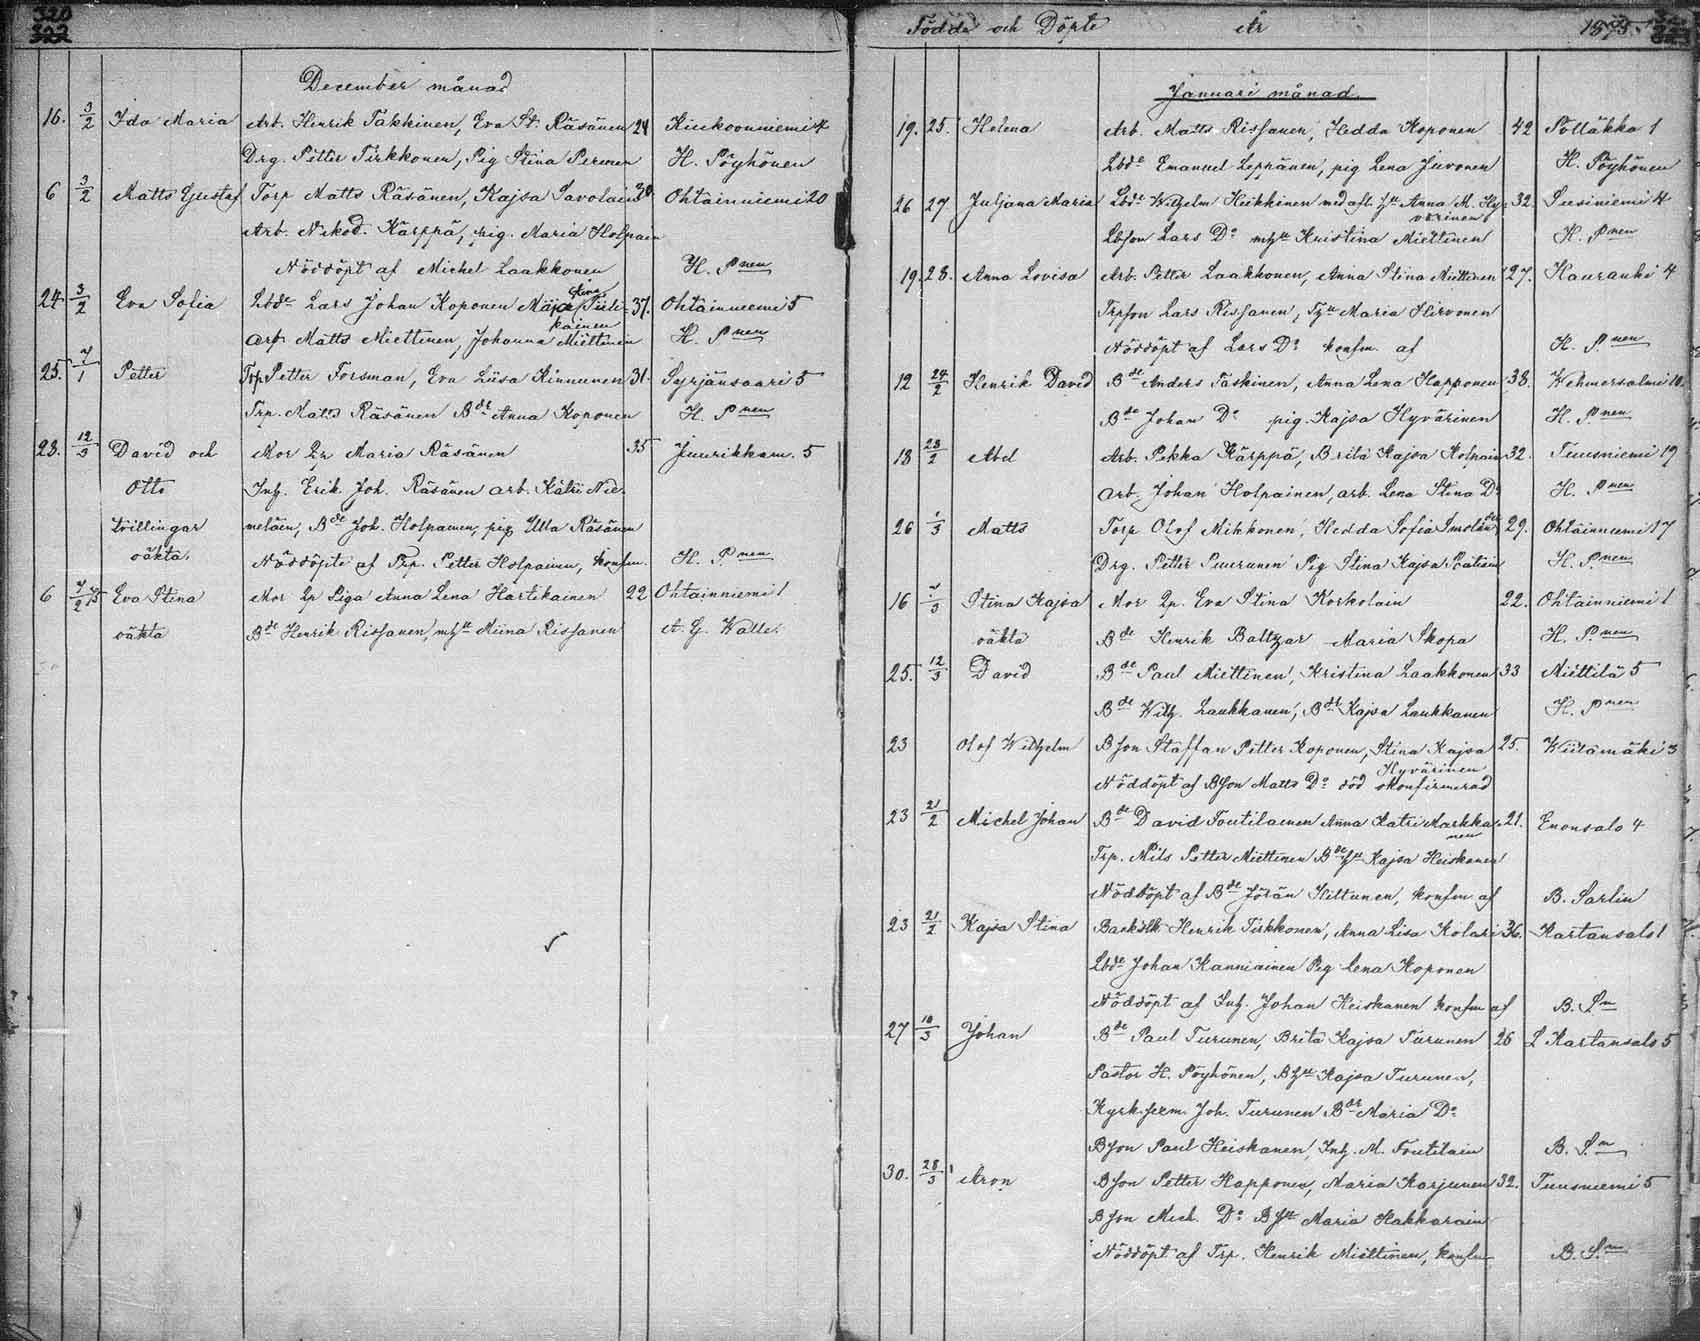 320
322
December månad
16. 3/2 Ida Maria Arb. Henrik Takkinen, Eva St. Räsänen 24 Kiukoonniemi 4
Drg. Petter Tirkkonen, Pig Stina H. Pöyhönen
6 3/2 Matts Gustaf Torp Matts Räsänen, Kajsa Savolain 30. Ohtainniemi 20
Arb. Nikod. Kärppä, pig. Maria Holpain
Nöddöpt af Michel Laakkonen H. Pnen
24 3/2 Eva Sofia Lbde Lars Johan Koponen Maja Stina Tiili- 37. Ohtainniemi 5
kainen
Arb Matts Miettinen, Johanna Miettinen H. Pnen
25. 7/1 Petter Trp Petter Forsman, Eva Liisa Kinnunen 31. Syrjänsaari 5
Trp. Matts Räsänen Bde Anna Koponen H. Pnen
28. 12/3 David och Mor Maria Räsänen 35 Juurikkam. 5
Otto Inh. Erik Joh. Räsänen arb. Katri Nie-
tvillingar meläin, Bde Joh. Holpainen, pig Ulla Räsänen
oäkta. Nöddöpte af Trp. Petter Holpainen, konfm. H. Pnen
6 7/2 75 Eva Stina Mor Lp Piga Anna Lena Hartikainen 22 Ohtainniemi 1
oäkta Bde Henrik Rissanen, mhu Miina Rissanen A. G. Walle.
Födde och Döpte År 1875.
Januari månad
19. 25. Helena Arb. Matts Rissanen, Hedda Koponen 42 Pölläkkä 1
Lbde Emanuel Leppänen, pig Lena Juvonen H. Pöyhönen
26 27 Juljana Maria Lbde Wilhelm Heikkinen med afl. hu Anna M. Hy- 32. Susiniemi 4
värinen
Lbson Lars Do mhu Kristina Miettinen H. Pnen
19. 28. Anna Lovisa Arb. Petter Laakkonen, Anna Stina Miettinen 27. Hauranki 4
Trpson Lars Rissanen, Thu Maria Hirvonen
Nöddöpt af Lars Do konfm. af H. Pnen
12 24/2 Henrik David Bde Anders Taskinen, Anna Lena Happonen 38. Wehmersalmi 10.
Bde Johan Do pig. Kajsa Hyvärinen H. Pnen
18 28/2 Abel Arb. Pekka Kärppä, Brita Kajsa Holpain 32. Tuusniemi 19
Arb. Johan Holpainen, arb. Lena Stina Do H. Pnen
26 1/3 Matts Torp Olof Mikkonen, Hedda Sofia 29. Ohtainniemi 17
Drg. Petter Puurunen Pig Stina Kajsa H. Pnen
16 /3 Stina Kajsa Mor Lp. Eva Stina Korkolain 22. Ohtainniemi 1
oäkta Bde Henrik Baltzar Maria Skopa H. Pnen
25. 12/3 David Bde Paul Miettinen, Kristina Laakkonen 33 Miettilä 5
Bde Wilh. Laukkanen, Bde Kajsa Laukkanen H. Pnen
23 Olof Wilhelm Bson Staffan Petter Koponen, Stina Kajsa 25. Wiitamäki 3
Hyvärinen
Nöddöpt af Bson Matts Do död okonfirmerad
23 21/2 Michel Johan Bde David Toutilainen Anna Katri Markka- 21. Enonsalo 4
nen
Trp. Nils Petter Miettinen Bdehu Kajsa Heiskanen
Nöddöpt af Bde Jöran Hiltunen, konfm af B. Sarlin
23 21/2 Kajsa Stina Backstk Henrik Tirkkonen, Anna Lisa Kolari 36. Kartansalo 1
Lbde Johan Kanniainen Pig Lena Koponen
Nöddöpt af Inh. Johan Heiskanen konfm af B. Sn
27 10/3 Johan Bde Paul Turunen, Brita Kajsa Turunen 26 L Kartansalo 5
Pastor H. Pöyhönen, Bhu Kajsa Turunen,
Kyrk.sexm. Joh. Turunen Bdr Maria Do
Bson Paul Heiskanen, Inh. M. Toutilain B. Sn
30. 28/3 Aron Bson Petter Happonen, Maria Karjunen 32. Tuusniemi 5
Bson Mich. Do Bhu Maria Hakkarain
Nöddöpt af Trp. Henrik Miettinen, konfm B. Sn